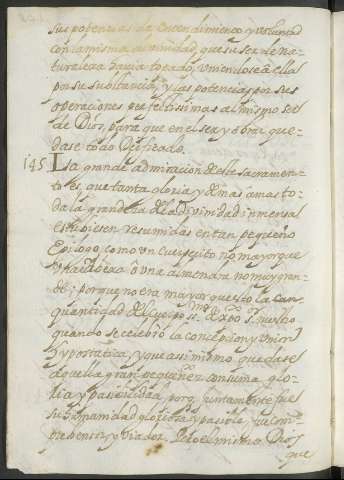 sus potencias de entendimiento y voluntad
con la misma divinidad, que su ser de na-
turaleza havia tocado, uniendose â ella
por su substancia, y las potencias por sus
operaciones perfectissimas al mismo ser
de Dios, para que en el ser y obrar que-
dase todo Deificado.
145. Es la grande admiracion de este sacramen-
to es, que tanta gloria, y demas a mas to-
da la grandeza de la divinidad inmensa
estuviesen resumidas en tan pequeño
Epilogo, como un cuerpecito no mayor que
una abexa o una almendra no muy gran-
de; porque no era mayor que esto la can
quantidad del cuerpo SS.mo de Xpto S.r nuestro
quando se celebrò la concepcion y Union
Hypostatica, y que asimismo quedase
aquella gran pequeñez con suma glo-
ria y pasibilidad porq. juntamente fue
su humanidad gloriosa y pasible, fue com-
prehensor, y Viador. Pero el mismo Dios
que